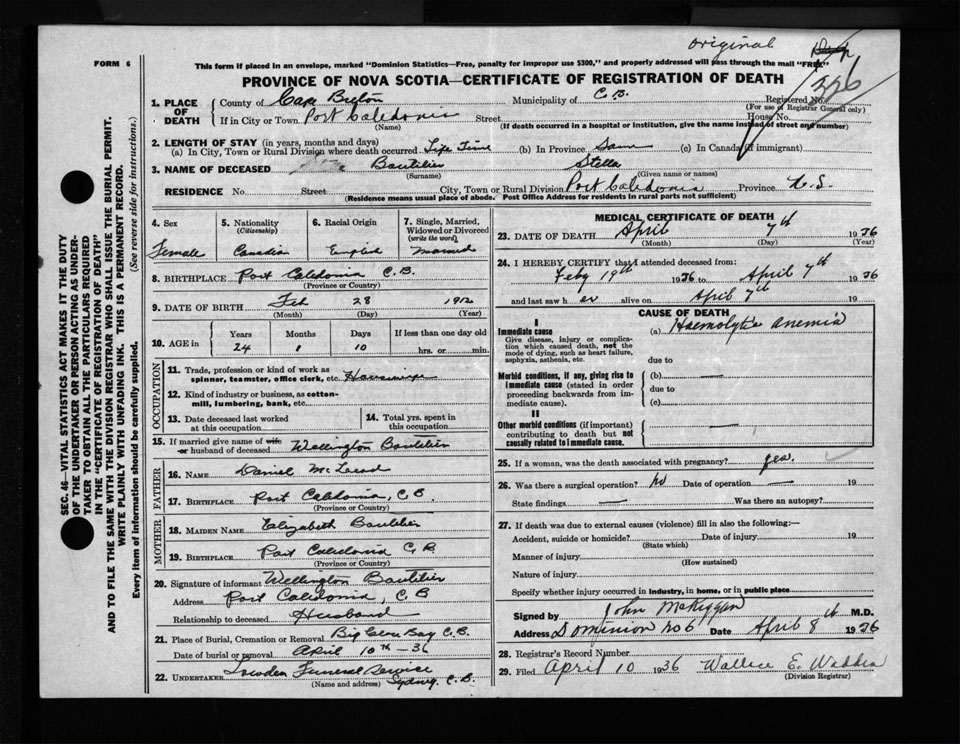 original
FORM 6
This form if placed in an envelope, marked "Dominion Statistics—Free, penalty for improper use $300," and properly addressed will pass through the mail "FREE"
PROVINCE OF NOVA SCOTIA—CERTIFICATE OF REGISTRATION OF DEATH
326
SEC. 46—VITAL STATISTICS ACT MAKES IT THE DUTY
OF THE UNDERTAKER OR PERSON ACTING AS UNDER-
TAKER TO OBTAIN ALL THE PARTICULARS REQUIRED
IN THE "CERTIFICATE OF REGISTRATION OF DEATH"
AND TO FILE THE SAME WITH THE DIVISION REGISTRAR WHO SHALL ISSUE THE BURIAL PERMIT.
WRITE PLAINLY WITH UNFADING INK. THIS IS A PERMANENT RECORD.
Every item of information should be carefully supplied. (See reverse side for instructions.)
1. PLACE OF DEATH County of Cape Breton Municipality of C.B. Registered No.
(For use of Registrar General only)
If in City or Town Port Caledonia Street House No.
(Name) (If death occurred in a hospital or institution, give the name instead of street and number)
2. LENGTH OF STAY (in years, months and days)
(a) In City, Town or Rural Division where death occurred Life Time (b) In Province Same (c) In Canada (if immigrant)
3. NAME OF DECEASED Boutilier Stella
(Surname) (Given name or names)
RESIDENCE No. Street City, Town or Rural Division Port Caledonia Province N.S.
(Residence means usual place of abode. Post Office Address for residents in rural parts not sufficient)
4. Sex 5. Nationality (Citizenship) 6. Racial Origin 7. Single, Married, Widowed or Divorced (write the word)
Female Canadian English Married
8. BIRTHPLACE Port Caledonia C.B.
(Province or Country)
9. DATE OF BIRTH Feb 28 1912
(Month) (Day) (Year)
10. AGE in Years Months Days If less than one day old
24 1 10 hrs. or min.
OCCUPATION
11. Trade, profession or kind of work as
spinner, teamster, office clerk, etc. Housewife
12. Kind of industry or business, as cotton-
mill, lumbering, bank, etc.
13. Date deceased last worked at this occupation 14. Total yrs. spent in this occupation
15. If married give name of wife
or husband of deceased Wellington Boutilier
FATHER
16. NAME Daniel McLeod
17. BIRTHPLACE Port Caledonia, C.B.
(Province or Country)
MOTHER
18. MAIDEN NAME Elizabeth Boutilier
19. BIRTHPLACE Port Caledonia C.B.
(Province or Country)
20. Signature of informant Wellington Boutilier
Address Port Caledonia, C.B
Relationship to deceased Husband
21. Place of Burial, Cremation or Removal Big Glace Bay C.B.
Date of burial or removal April 10th - 36
22. UNDERTAKER Funeral Service
(Name and address) Sydney, C.B.
MEDICAL CERTIFICATE OF DEATH
23. DATE OF DEATH April 7th 1936
(Month) (Day) (Year)
24. I HEREBY CERTIFY that I attended deceased from:
Feby 19th 1936 to April 7th 1936
and last saw her alive on April 7th 19
CAUSE OF DEATH
I
Immediate cause (a) Haemolytic anemia
Give disease, injury or complica-
tion which caused death, not the
mode of dying, such as heart failure,
asphyxia, asthenia, etc. due to
Morbid conditions, if any, giving rise to (b) —
immediate cause (stated in order due to
proceeding backwards from im-
mediate cause). (c)
II
Other morbid conditions (if important) —
contributing to death but not
causally related to immediate cause.
25. If a woman, was the death associated with pregnancy? yes.
26. Was there a surgical operation? No Date of operation — 19
State findings — Was there an autopsy?
27. If death was due to external causes (violence) fill in also the following:—
Accident, suicide or homicide? Date of injury 19
(State which)
Manner of injury
(How sustained)
Nature of injury
Specify whether injury occurred in industry, in home, or in public place
Signed by John McKiggan M.D.
Address Dominion No 6 Date April 8th 1936
28. Registrar's Record Number
29. Filed April 10 1936 Wallace E. Wadden
(Division Registrar)